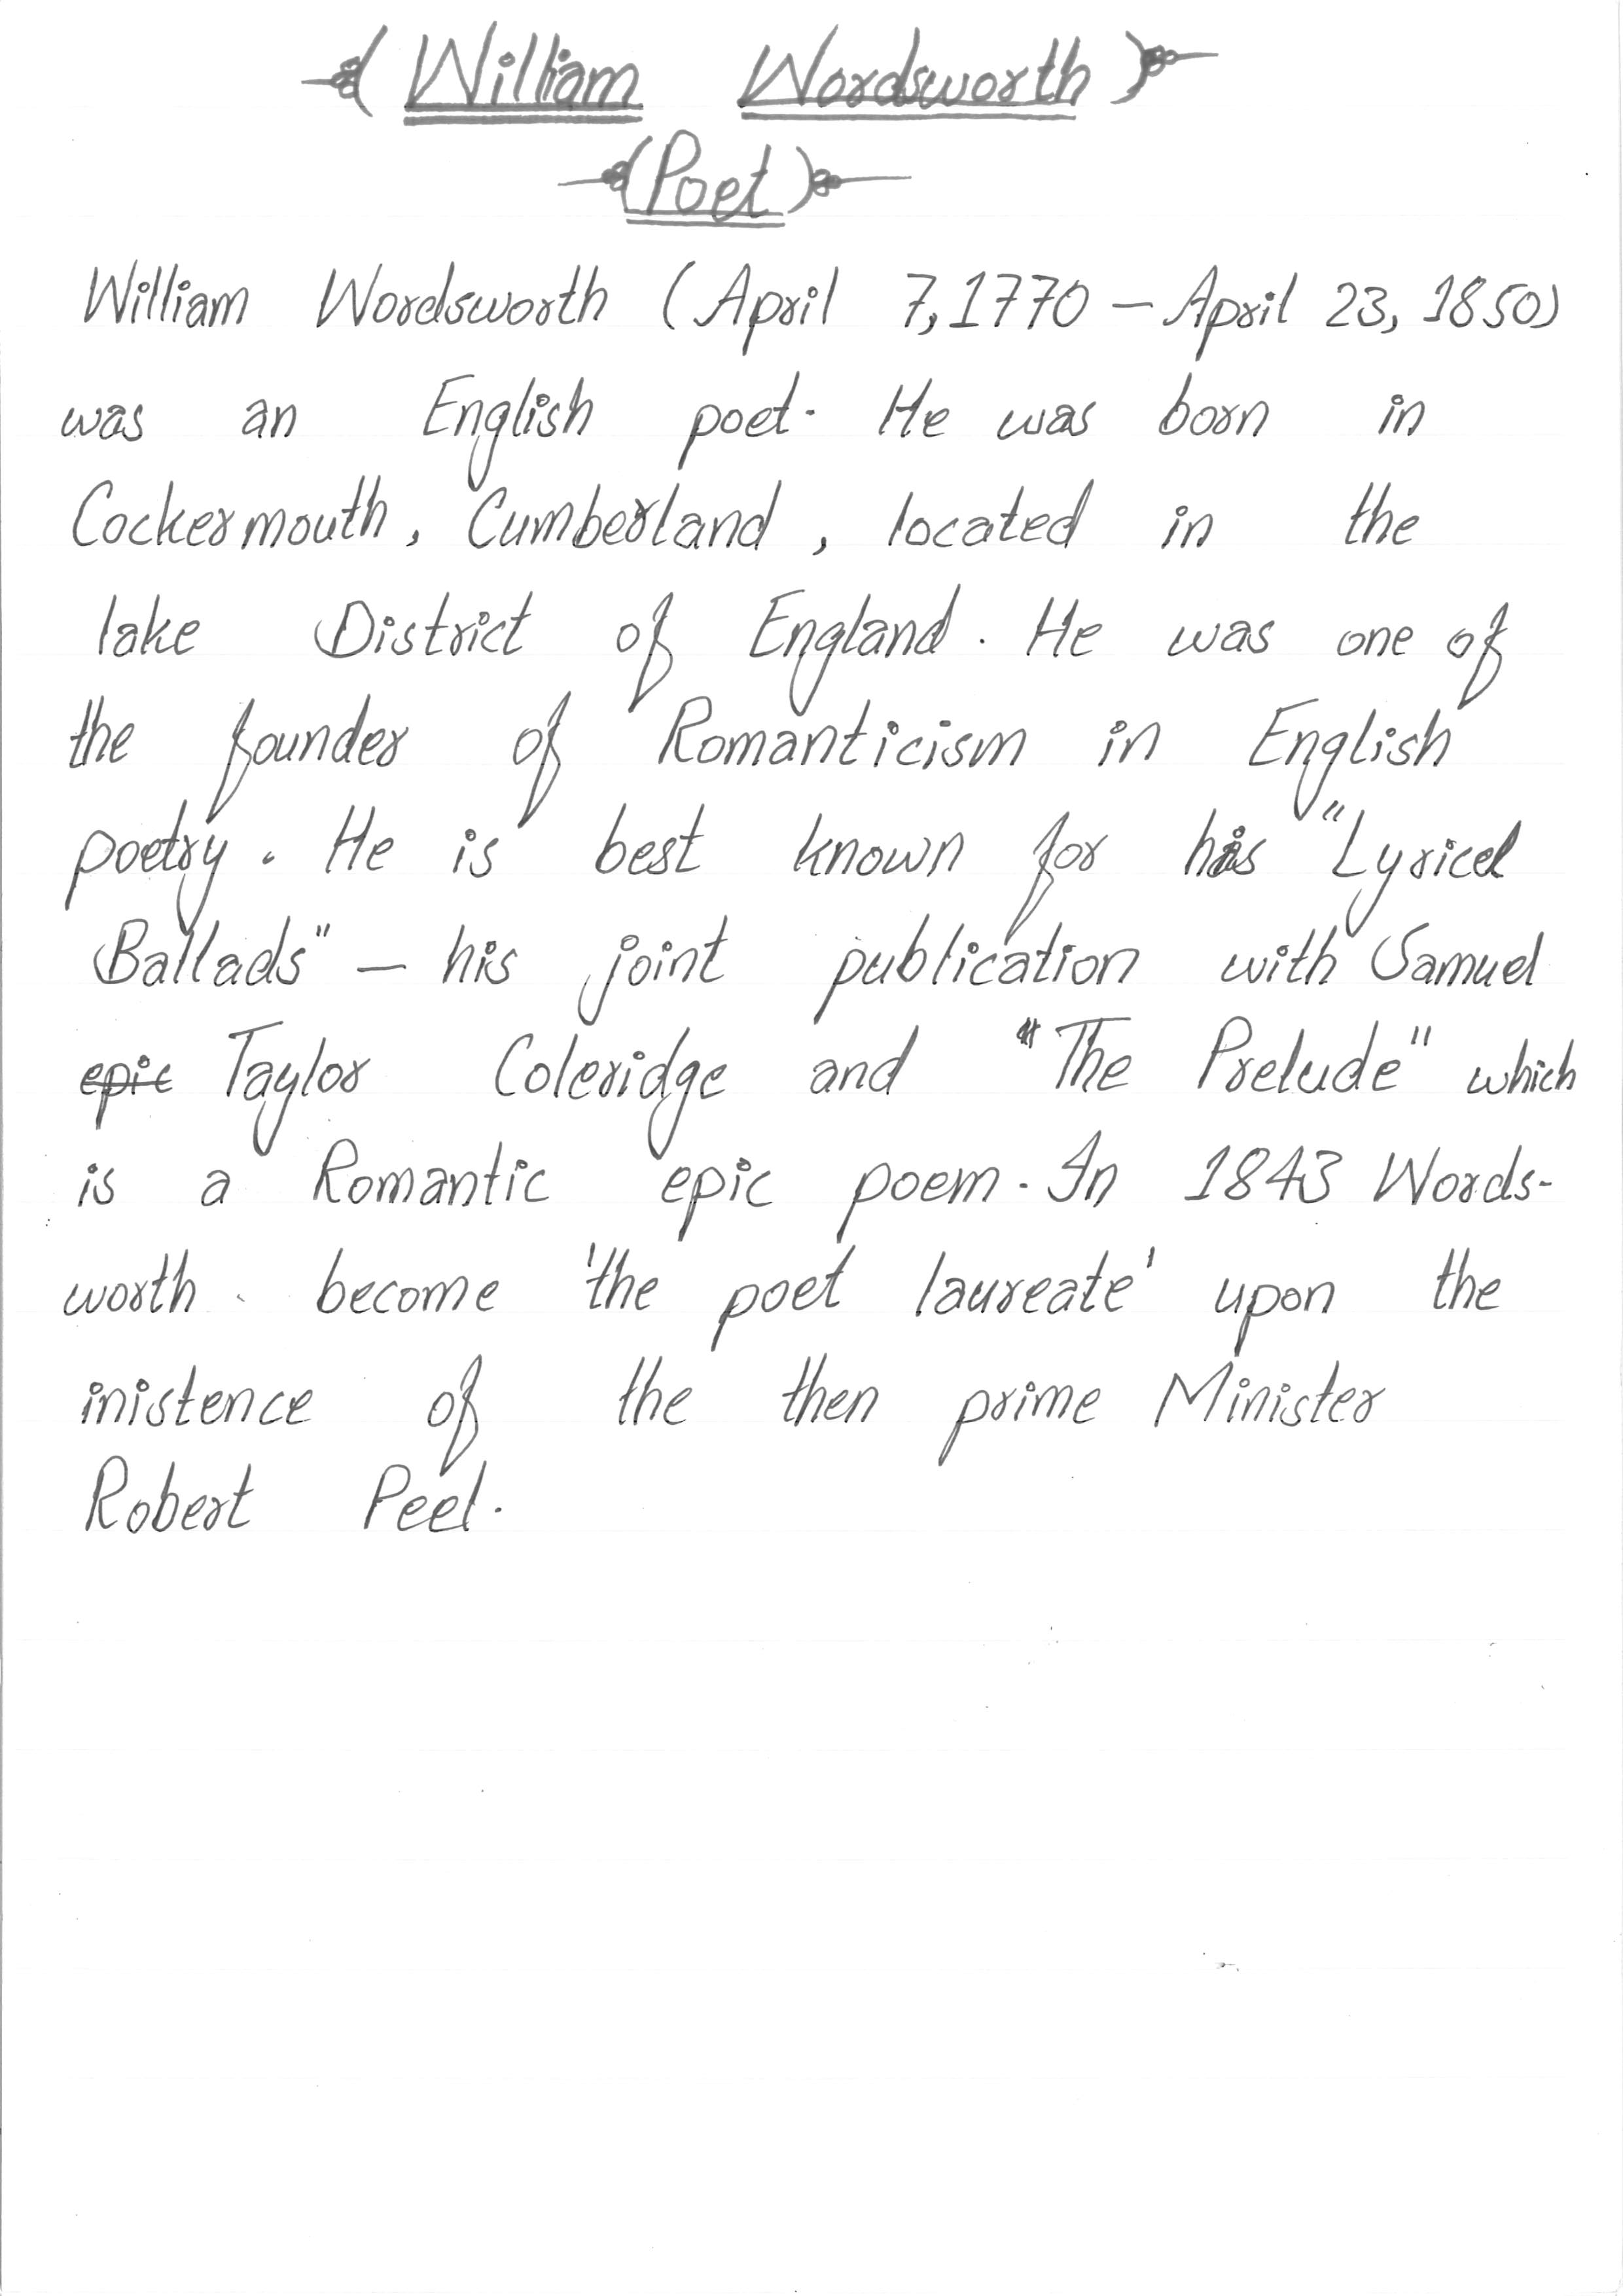 William Wordsworth
(Poet)
William Wordsworth (April 7, 1770 – April 23, 1850)
was an English poet. He was born in
Cockermouth, Cumberland, located in the
lake District of England. He was one of
the founder of Romanticism in English
poetry. He is best known for his "Lyrical
Ballads" – his joint publication with Samuel
epic Taylor Coleridge and "The Prelude" which
is a Romantic epic poem. In 1843 Words-
worth become 'the poet laureate' upon the
inistence of the then prime Minister
Robert Peel.